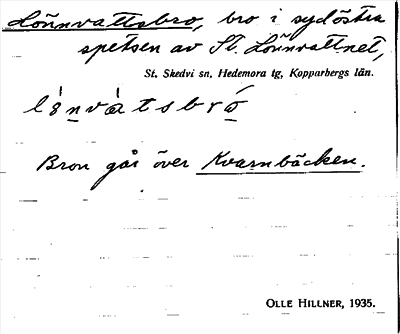 Lönnvattsbro, bro i sydöstra
spetsen av St. Lönnvattnet,
St. Skedvi sn, Hedemora tg, Kopparbergs län.
lǫ̈nvàtsbró
Bron går över Kvarnbäcken.
OLLE HILLNER, 1935.